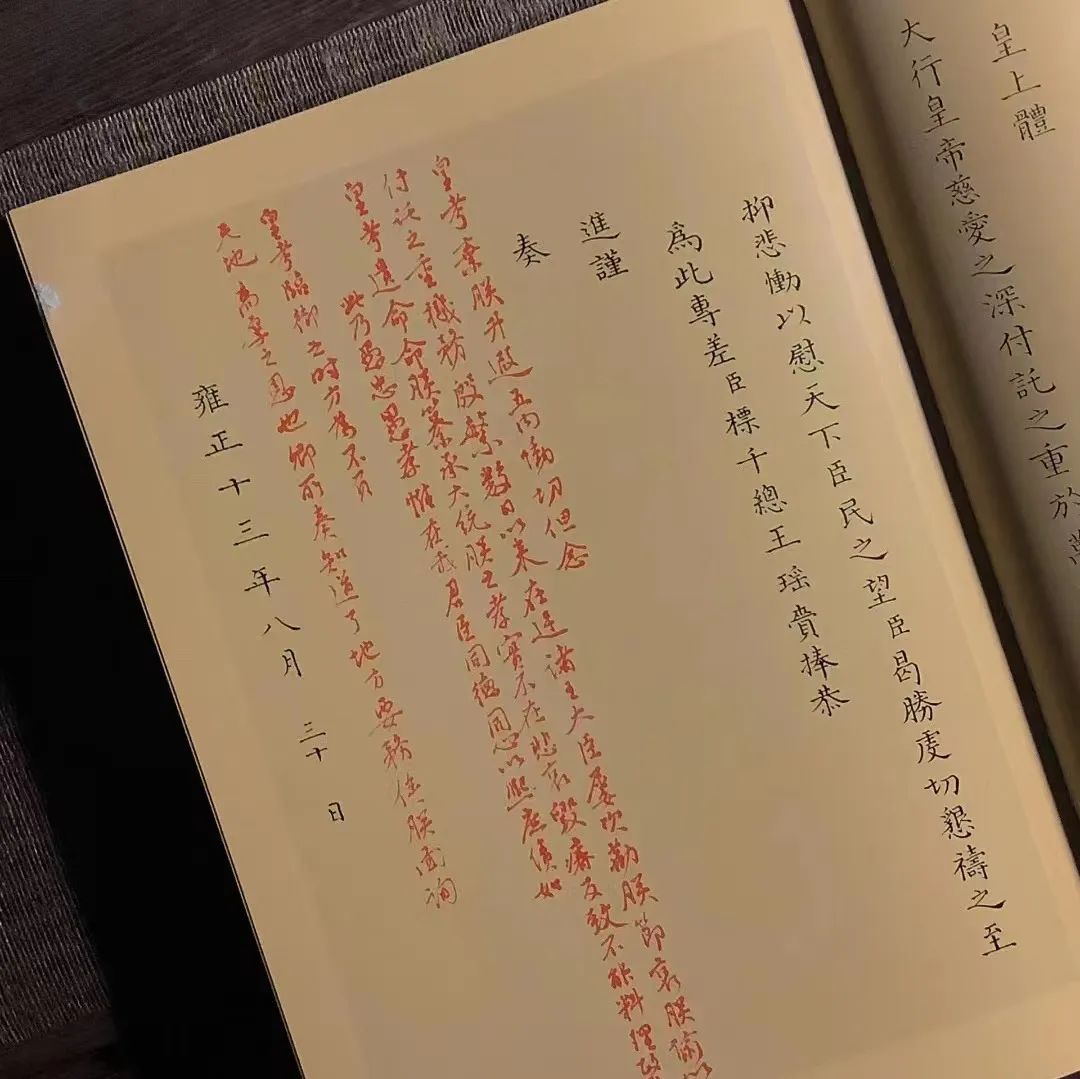 皇上體
大行皇帝慈愛之深付託之重於萬
抑悲慟以慰天下臣民之望臣曷勝虔切懇禱之至
爲此專差臣標千總王瑶賫捧恭
進謹
奏
皇考棄朕升遐五内慟切但念
付託之重機務殷繁數日以來在廷諸王大臣屢次勸朕節哀朕倘以
皇考遺命命朕纂承大統朕之孝實不在悲哀毀瘠反致不能料理
此乃愚忠愚孝惟在我君臣同德同心以熙庶績如
皇考臨御之時方爲不負
天地高厚之恩也卿所奏知道了地方要務候朕面詢
雍正十三年八月三十日